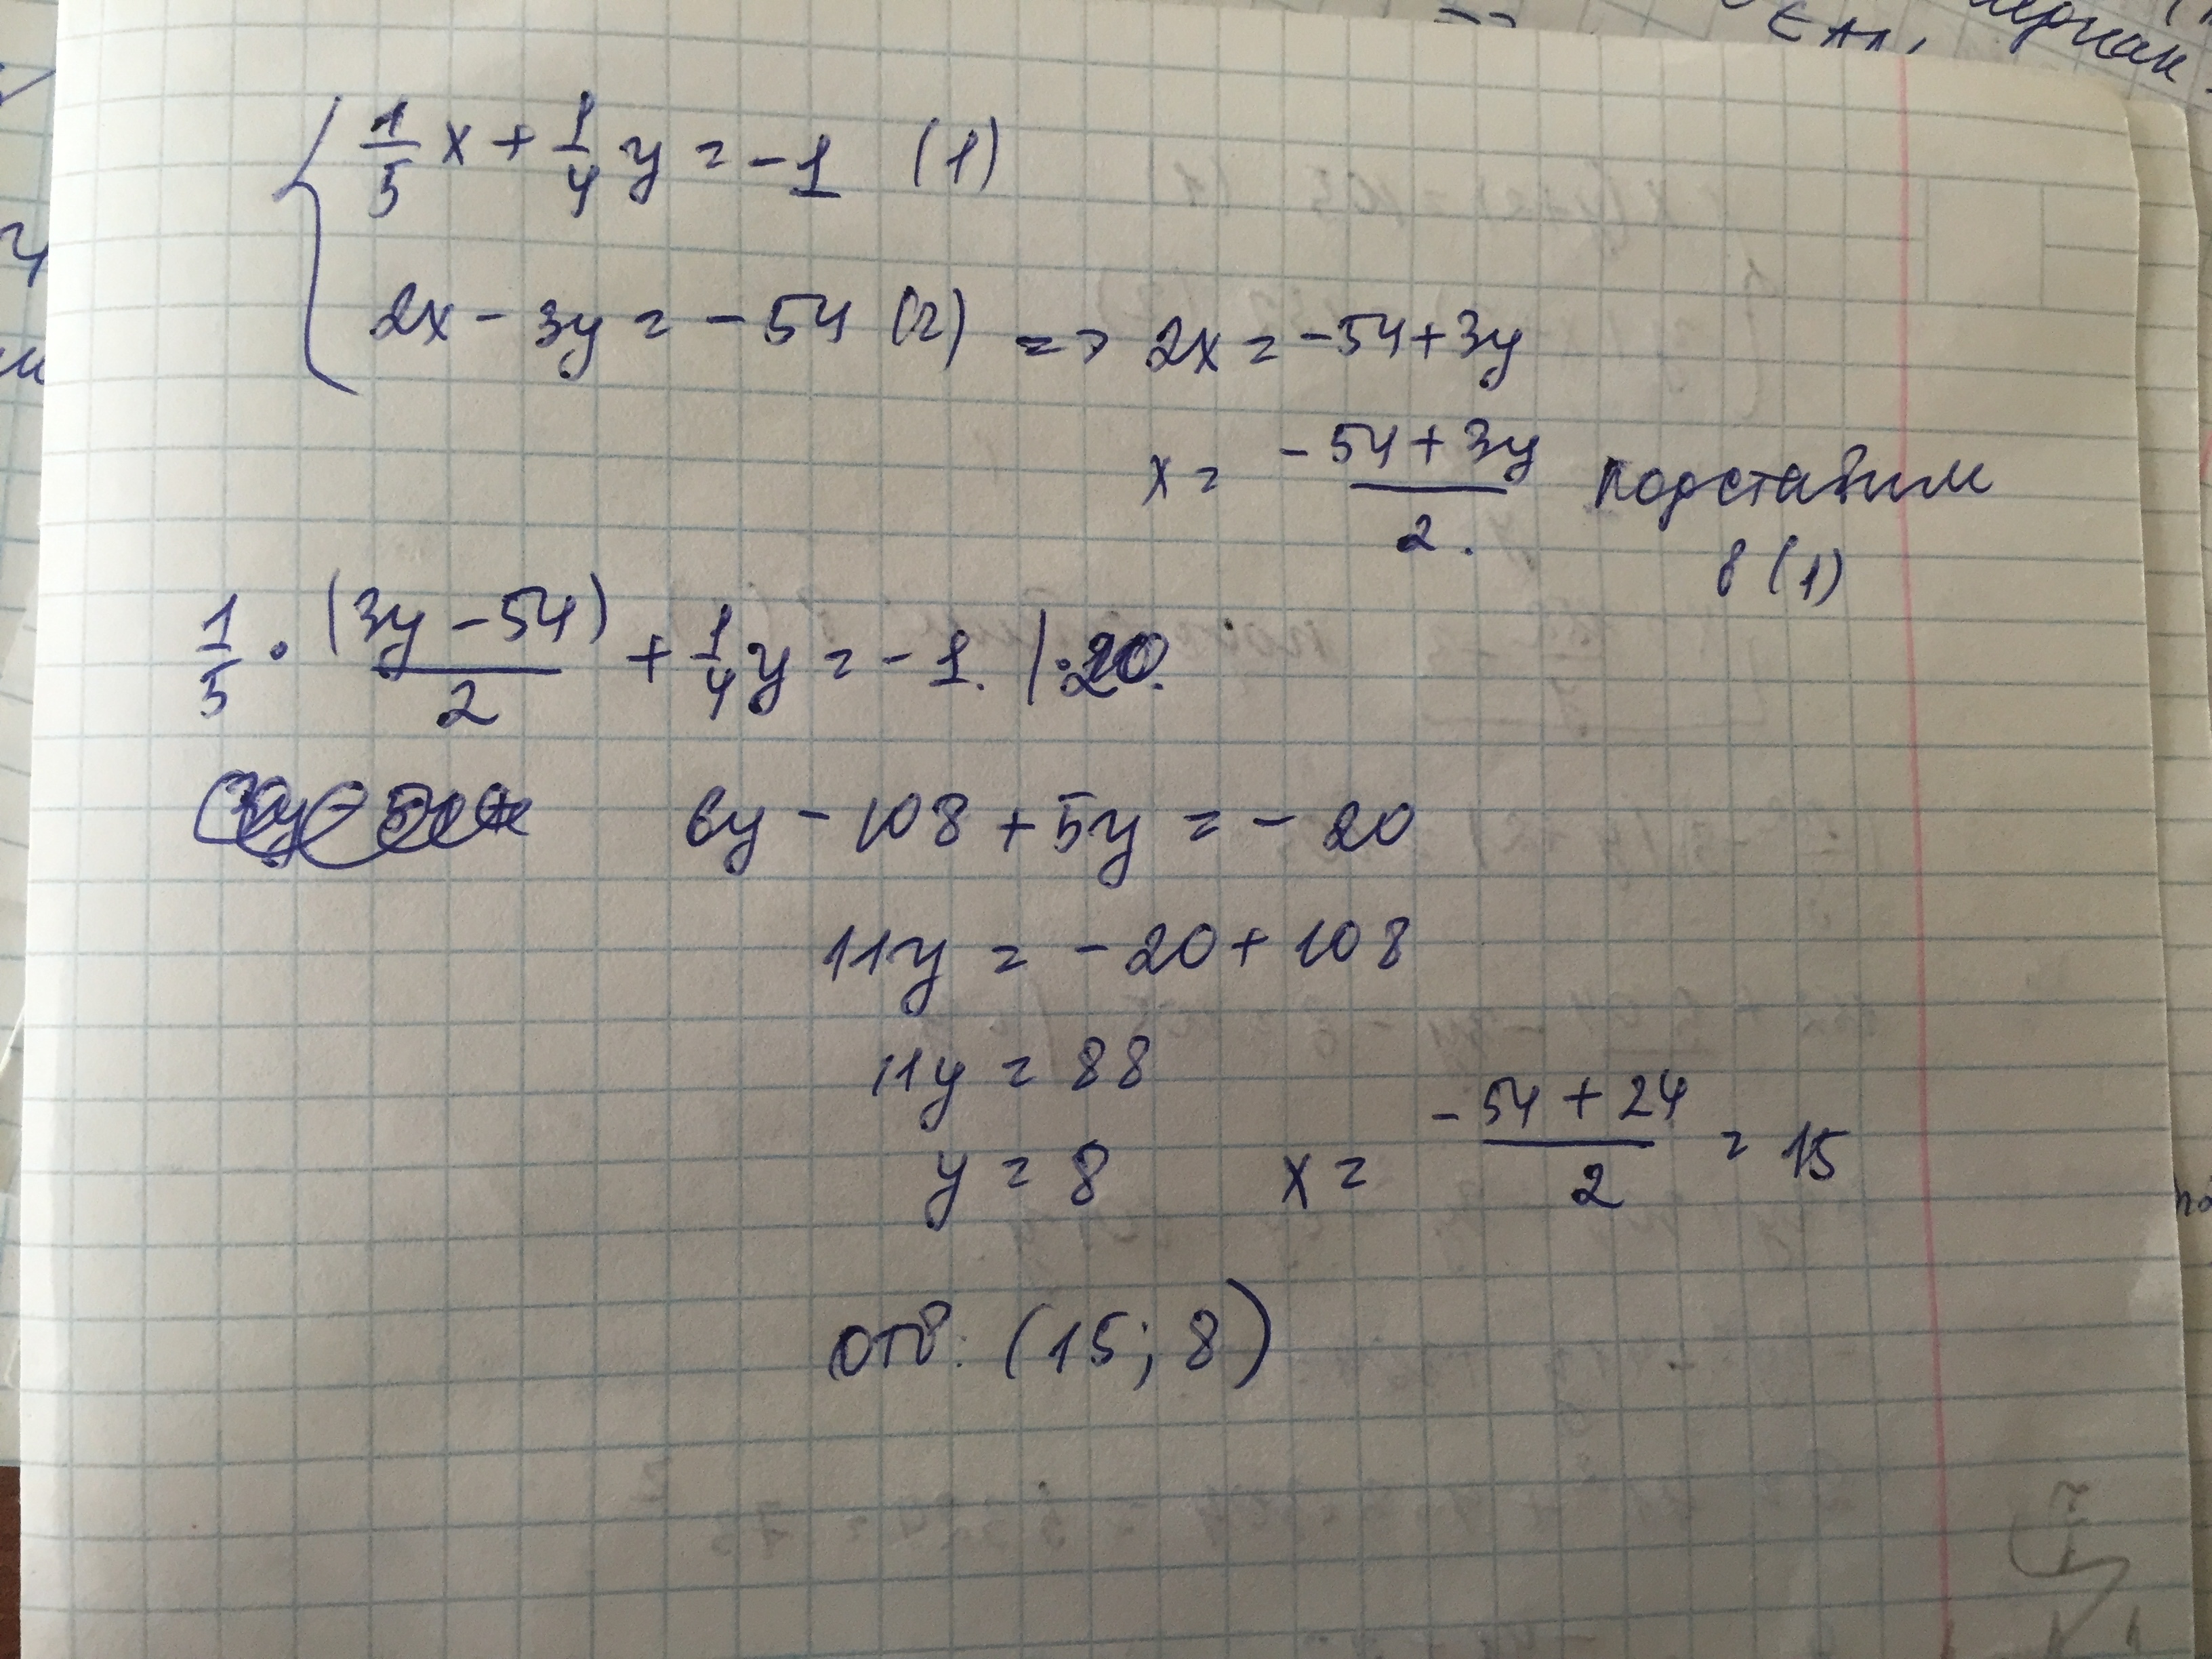 1/5 x + 1/4 y = -1 (1)
2x - 3y = -54 (2) => 2x = -54 + 3y
x = (-54 + 3y)/2. подставим
в (1)
1/5 · (3y - 54)/2 + 1/4 y = -1. | · 20.
6y - 108 + 5y = -20
11y = -20 + 108
11y = 88
y = 8 x = (-54 + 24)/2 = 15
отв: (15; 8)